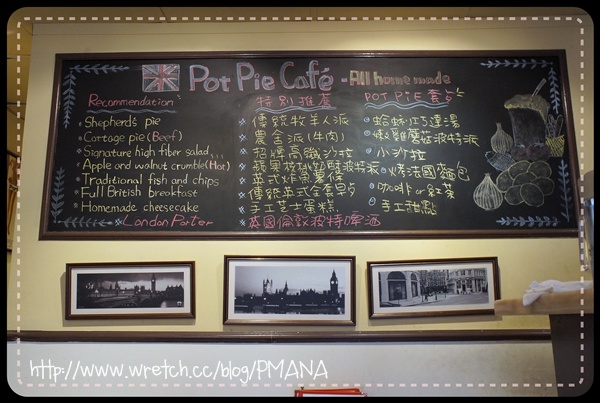 Pot Pie Café - All home made
Recommendation
Shepherd's pie
Cottage pie (Beef)
Signature high fiber salad...
Apple and walnut crumble (Hot)
Traditional fish and chips
Full British breakfast
Homemade cheesecake
London Porter
特別推薦
傳統牧羊人派
農舍派(牛肉)
招牌高纖沙拉
蘋果核桃酥波特派
英式炸魚薯條
傳統英式全套早點
手工芝士蛋糕
英國倫敦波特啤酒
POT PIE套餐
蛤蜊巧達濃湯
嫩雞蘑菇波特派
小沙拉
烤法國麵包
咖啡 or 紅茶
手工甜點
http://www.wretch.cc/blog/PMANA